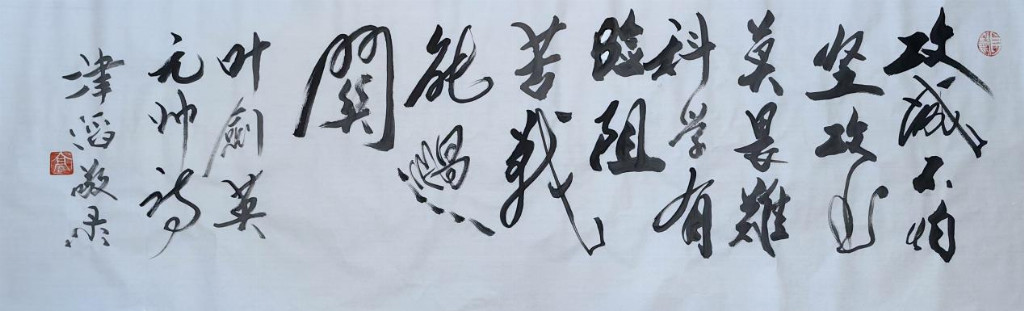 攻城不怕
坚攻书
莫畏難
科学有
險阻
苦戰
能過
關
叶劍英
元帅诗
津滔敬录